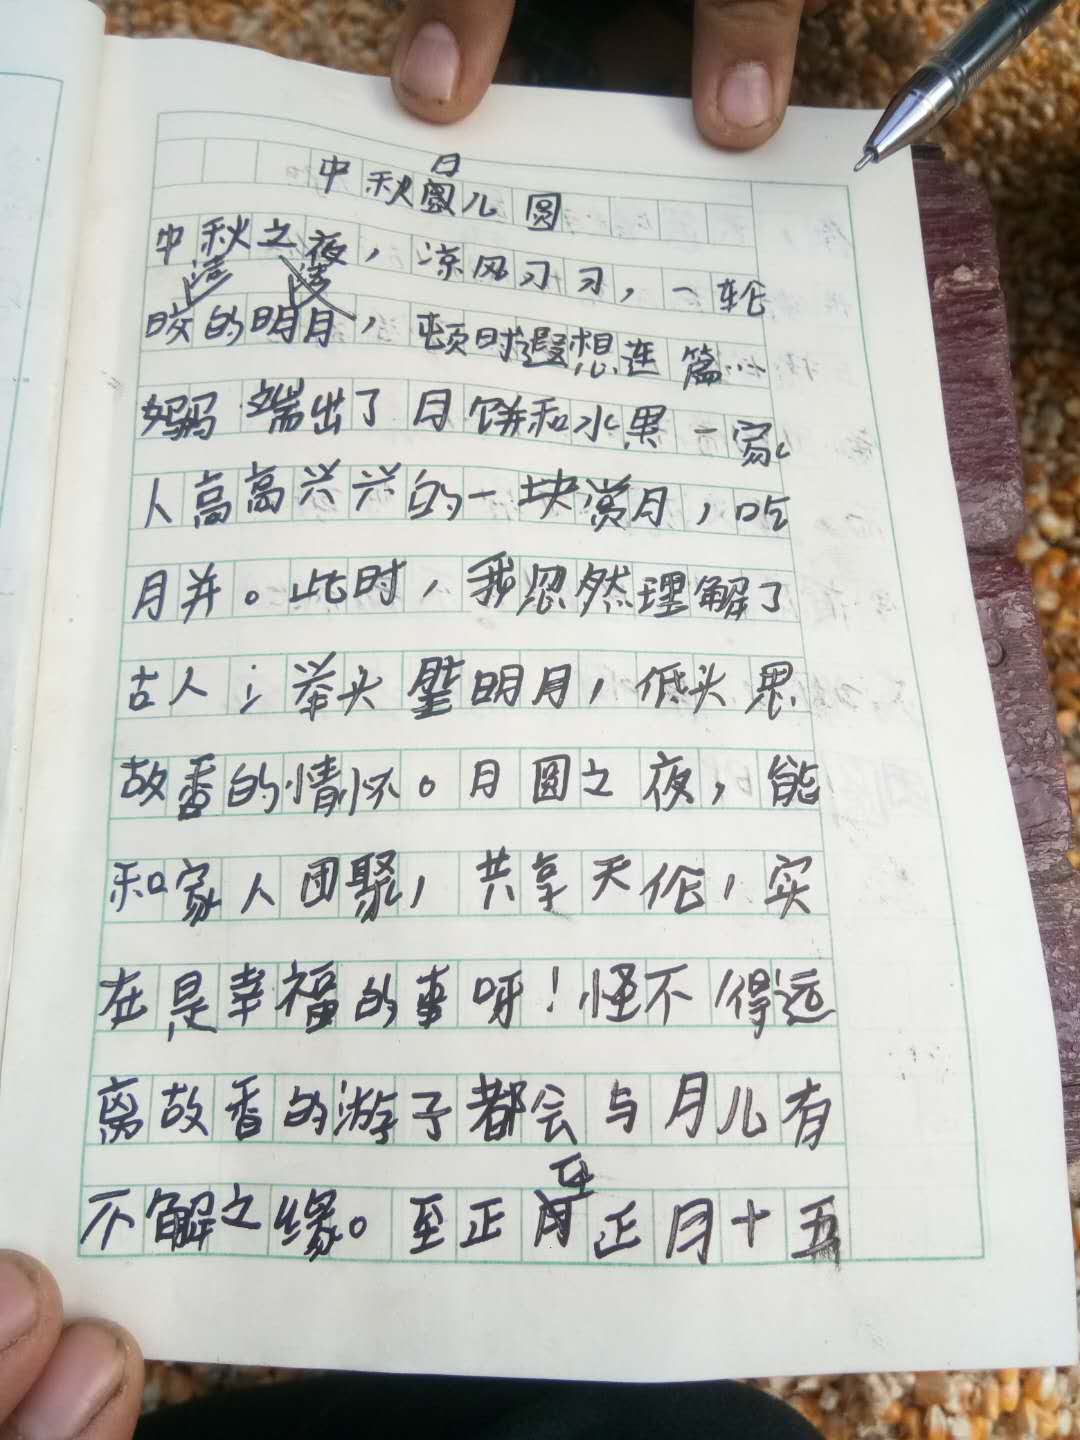 中秋月儿圆
中秋之夜，凉风习习，一轮
皎洁的明月，顿时遐想连篇…
妈妈端出了月饼和水果一家
人高高兴兴的一块赏月，吃
月并。此时，我忽然理解了
古人；举头望明月，低头思
故香的情怀。月圆之夜，能
和家人团聚，共享天伦，实
在是幸福的事呀！怪不得远
离故香的游子都会与月儿有
不解之缘。至正正月十五